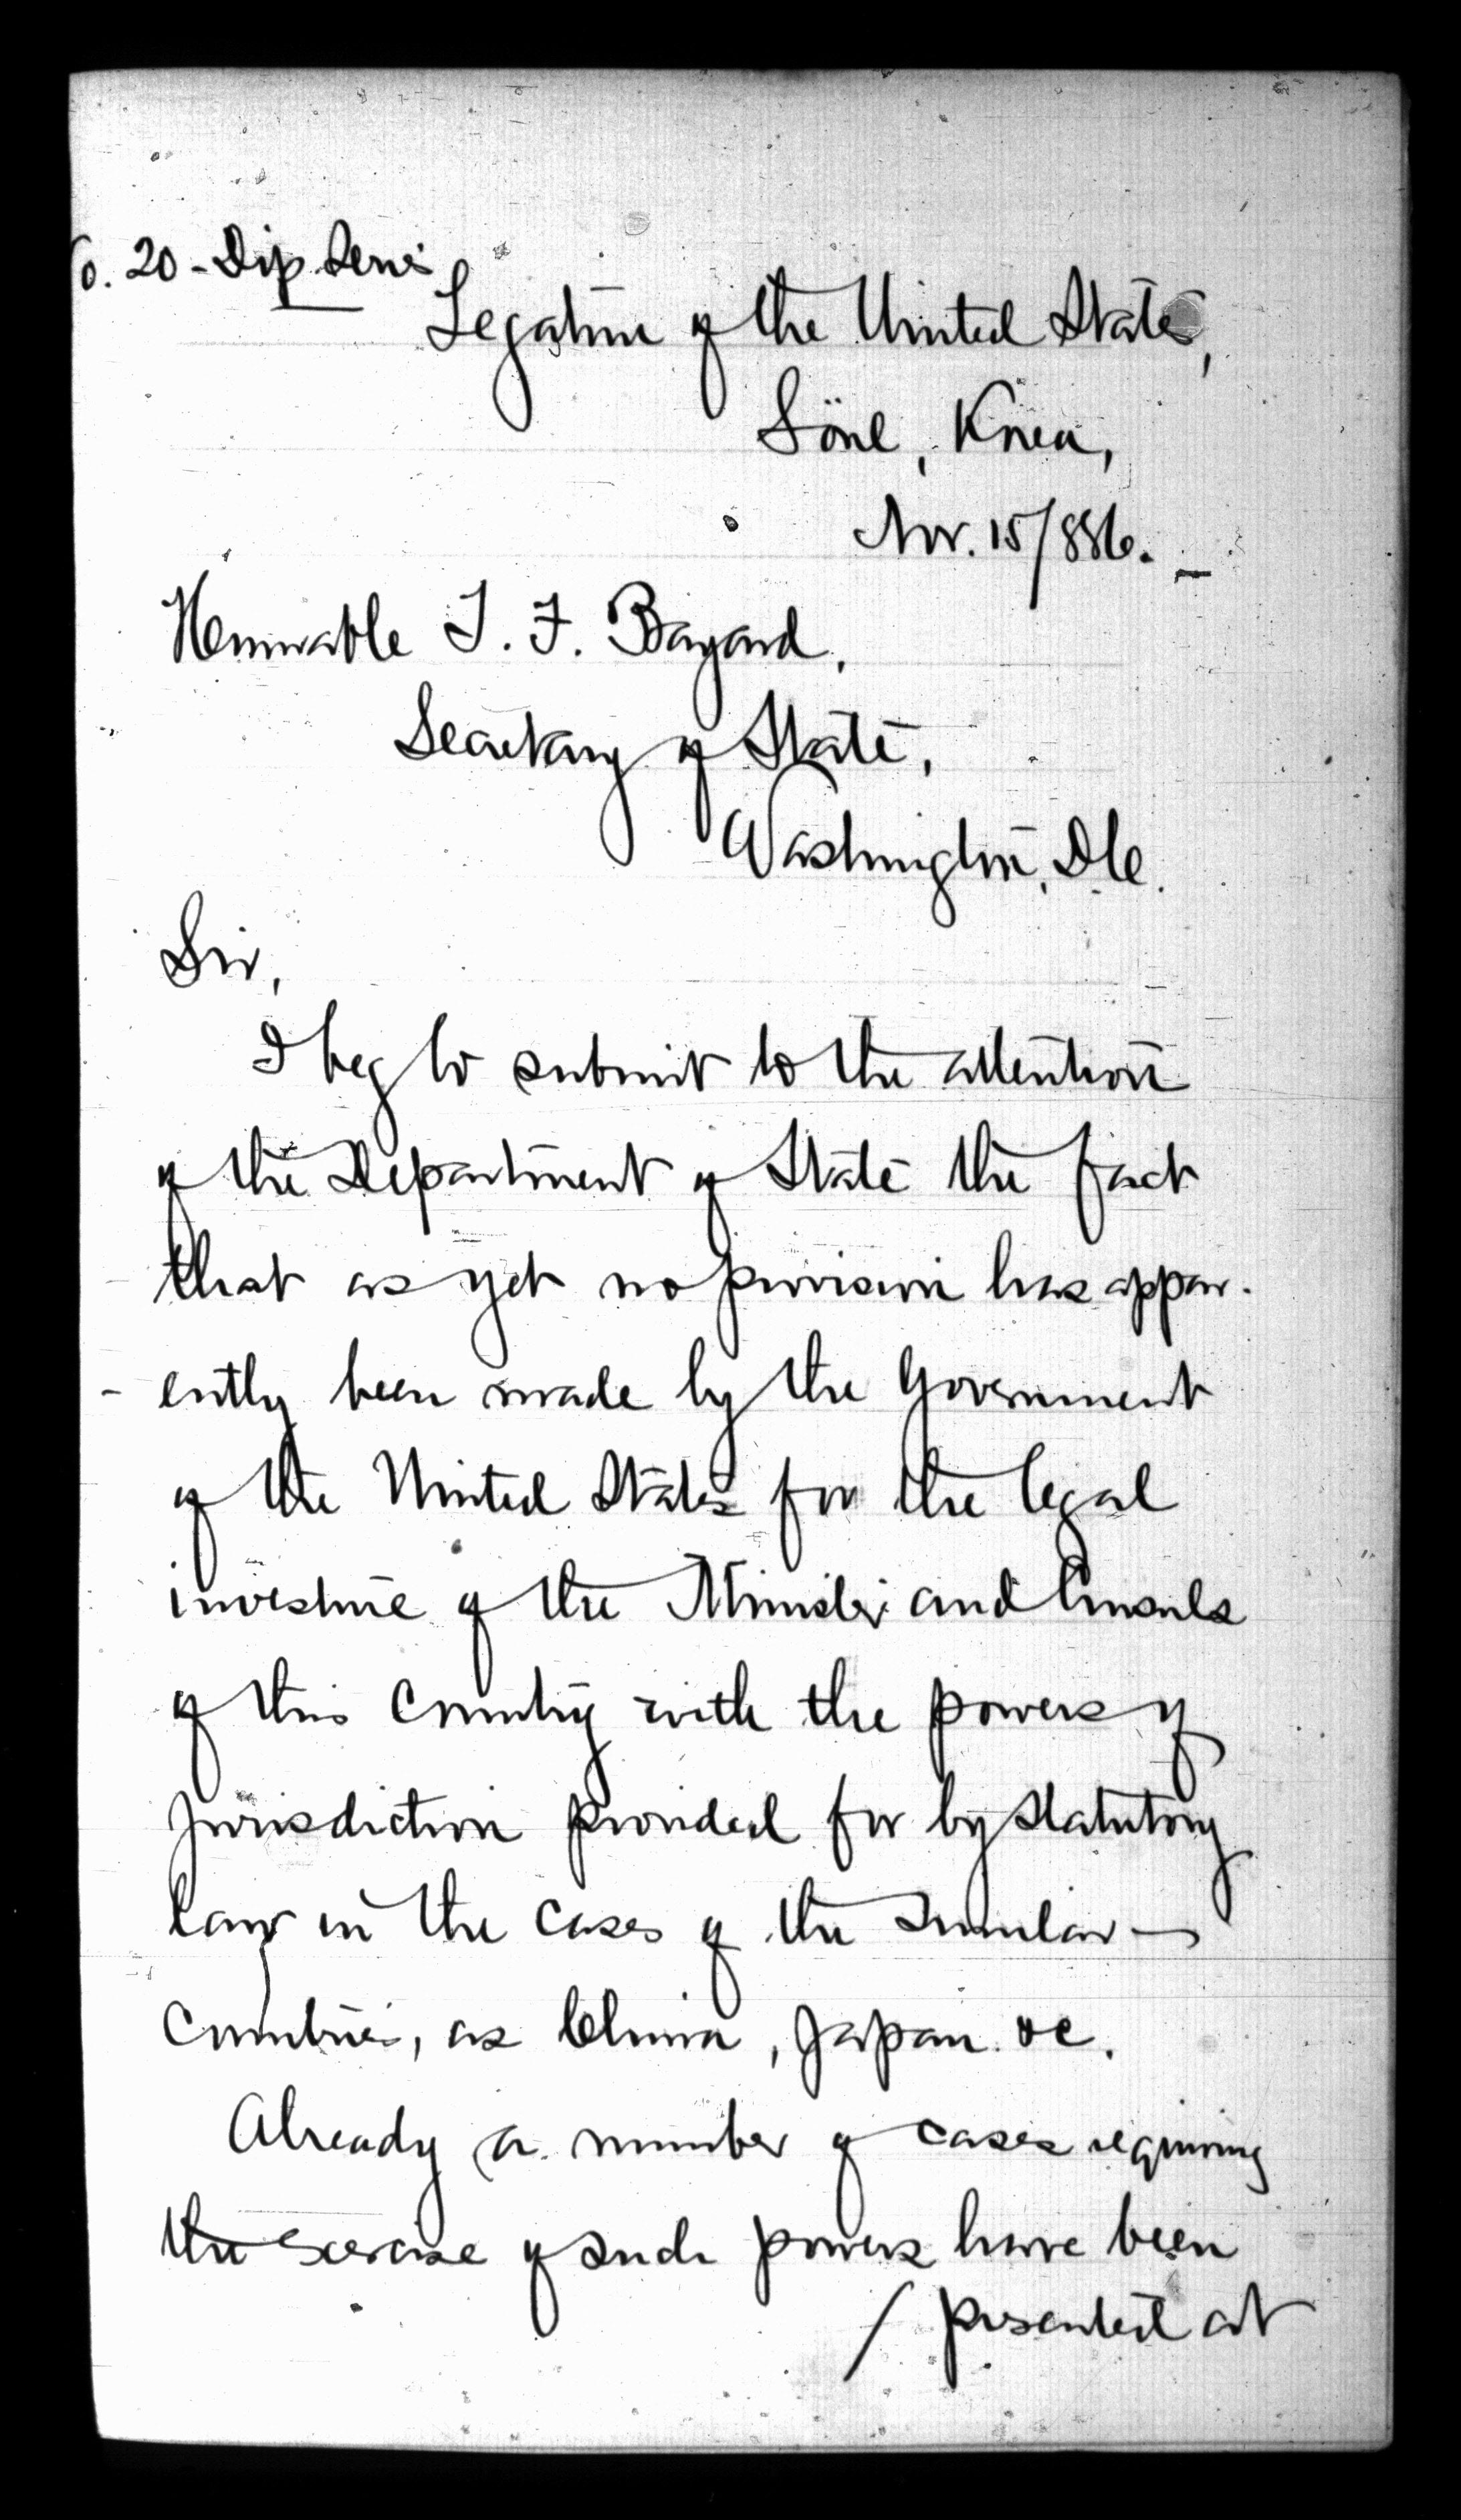 No. 20 - Dip. Series
Legation of the United States,
Söul, Korea,
Nov. 15/886.
Honorable T. F. Bayard,
Secretary of State,
Washington, D.C.
Sir,
I beg to submit to the attention
of the Department of State the fact
that as yet no provision has appar-
-ently been made by the Government
of the United States for the legal
investure of the Minister and Consuls
of this Country with the powers of
jurisdiction provided for by Statutory
law in the cases of the similar
Countries, as China, Japan &c.
Already a number of cases requiring
the exercise of such powers have been
/ presented at